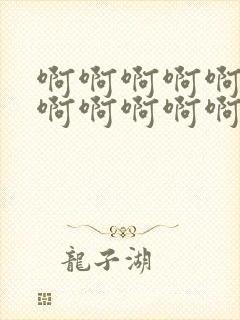 啊啊啊啊啊
啊啊啊啊啊
龍子湖